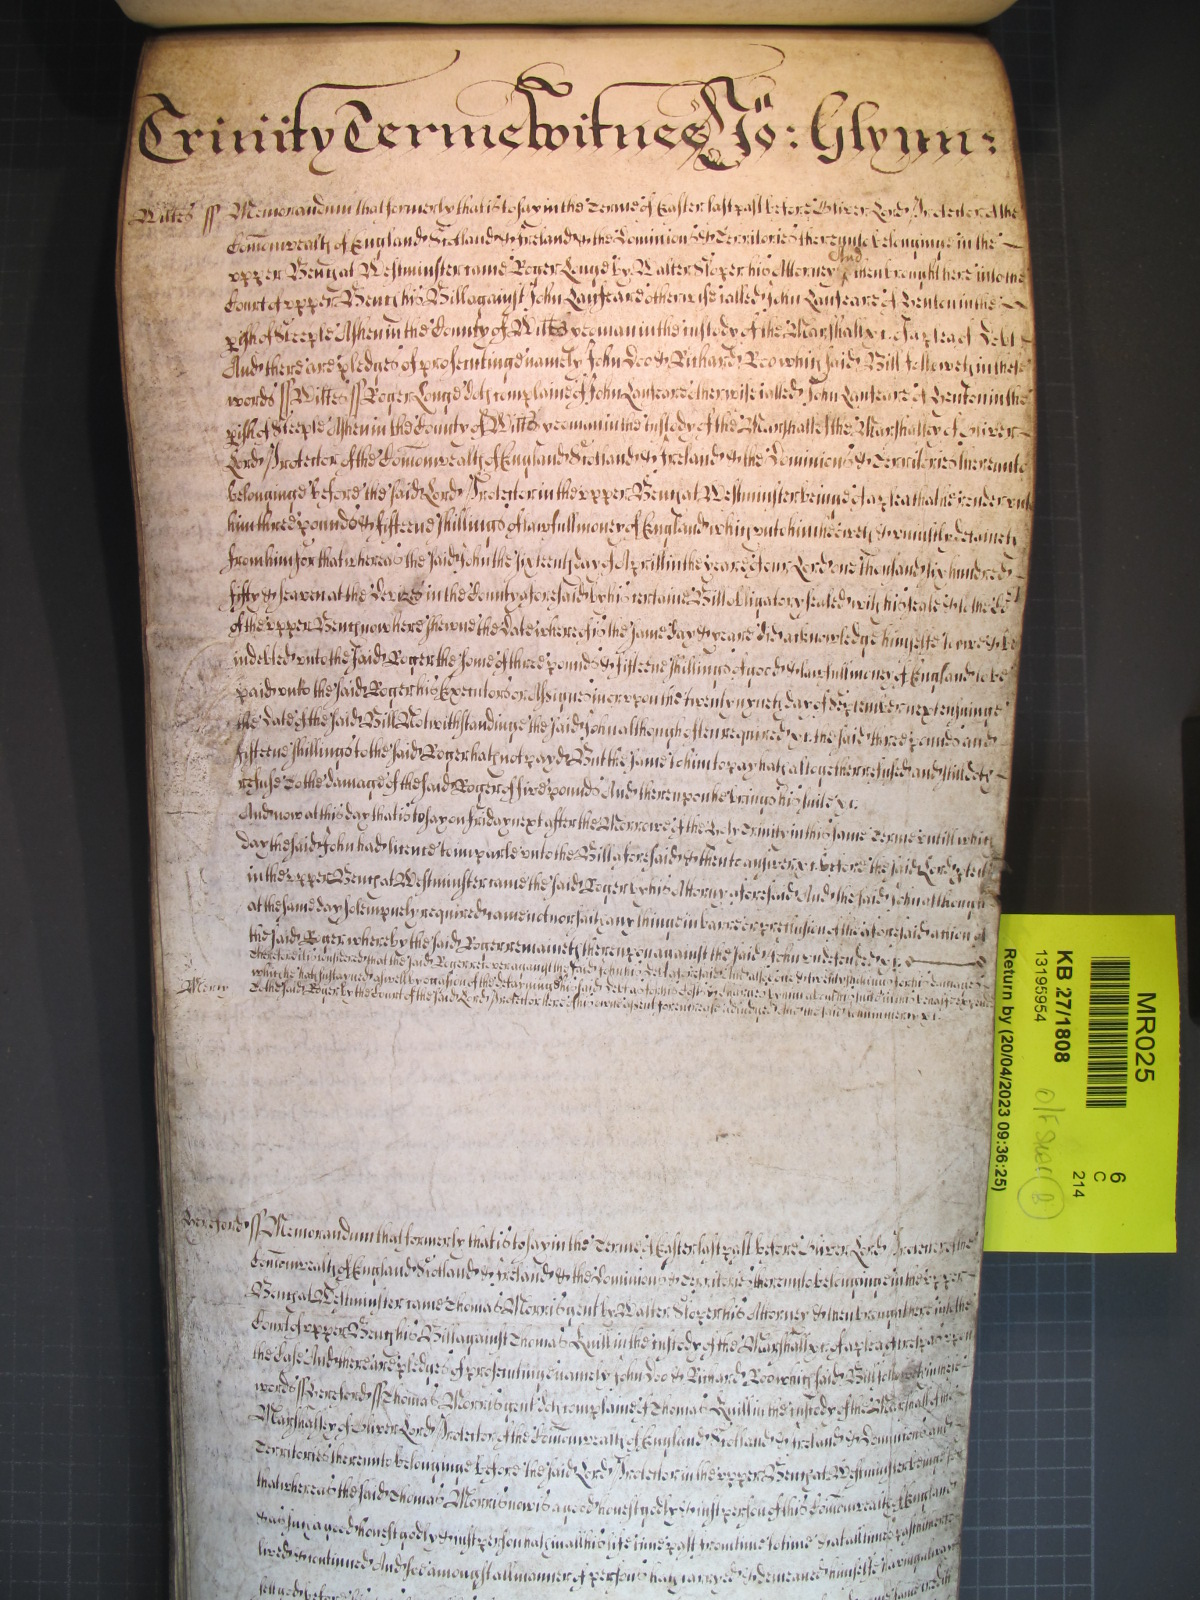 Trinity Terme Witnes Jo: Glynn:
Wiltes ss Memorandum that formerly that is to say in the Terme of Easter last past before Oliver Lord Protector of the
Com̄onwealth of England Scotland & Ireland & the Dominions & Territories thereunto belonginge in the
upper Bench at Westminster came Roger Longe by Walter Sloper his Attorney And then brought here into the
Court of upper Bench his Bill against John Lanseare otherwise called John Lanseare of in the
pish of Steeple Ashen in the County of Wiltes yeoman in the custody of the Marshall &c. of a plea of Debt
And there are pledges of prosecutinge namely John Doo & Richard Roo which said Bill followeth in these
words ss Wiltes ss Roger Longe doth complaine of John Lanseare otherwise called John Lanseare of in the
pish of Steeple Ashen in the County of Wiltes yeoman in the custody of the Marshall of the Marshalsey of Oliver
Lord Protector of the Com̄onwealth of England Scotland & Ireland & the Dominions & Territories thereunto
belonginge before the said Lord Protector in the upper Bench at Westminster beinge of a plea that he render unto
him three pounds & fifteene shillings of lawfull money of England which unto him he oweth & uniustly detaineth
from him for that whereas the said John the sixteenth day of Aprill in the yeare of our Lord one thousand six hundred
fifty & seaven at the Devizes in the County aforesaid by his certaine Bill obligatory sealed with his seale & to the Co
of the upper Bench now here shewne the date whereof is the same day & yeare did acknowledge himselfe to owe & be
indebted unto the said Roger the some of three pounds & fifteene shillings of good & lawfull money of England to be
paid unto the said Roger his Executors or Assignes in or upon the twenty nyneth day of September next ensuinge
the date of the said Bill Notwithstandinge the said John although often required &c. the said three pounds and
fifteene shillings to the said Roger hath not payd But the same to him to pay hath altogether refused and still doth
refuse To the damage of the said Roger of five pounds And thereupon he brings his suite &c.
And now at this day that is to say on Friday next after the Morrow of the Holy Trinity in this same Terme untill which
day the said John had licence to imparle unto the Bill aforesaid & then to answer &c. before the said Lord Protector
in the upper Bench at Westminster came the said Roger by his Attorny aforesaid And the said John although
at the same day solempnely required came not nor saith any thinge in barre or preclusion of the aforesaid action of
the said Roger whereby the said Roger remaineth thereupon against the said John undefended &c.
Therefore it is considered that the said Roger recover against the said John his debt aforesaid And alsoe one & twenty shillings for his damages
which he hath sustayned aswell by occasion of the detayninge his said debt as for his costs & charges by him about his suite in this behalfe expended
Mercy to the said Roger by the Court of the said Lord Protector here of his owne assent adiudged And the said John in mercy &c.
Hereford ss Memorandum that formerly that is to say in the Terme of Easter last past before Oliver Lord Protector of the
Com̄onwealth of England Scotland & Ireland & the Dominions & Territories thereunto belonginge in the upper
Bench at Westminster came Thomas Morris gent by Walter Sloper his Attorney & then brought here into the
Court of upper Bench his Bill against Thomas Quill in the custody of the Marshall &c. of a plea of trespas upon
the Case And there are pledges of prosecutinge namely John Doo & Richard Roo which said Bill followeth in these
words ss Hereford ss Thomas Morris gent doth complaine of Thomas Quill in the custody of the Marshall of the
Marshalsey of Oliver Lord Protector of the Com̄onwealth of England Scotland & Ireland & Dominions and
Territories thereunto belonginge before the said Lord Protector in the upper Bench at Westminster beinge for
that whereas the said Thomas Morris now is a good honest godly & iust person of this Com̄onwealth of England
& as such a good honest godly & iust person hath in all his life time past from time to time & at all times past hitherto
lived & continued And soe amongst all manner of persons hath carryed & demeaned himselfe
MR025
KB 27/1808
13195954
Return by (20/04/2023 09:36:25)
6
C
214